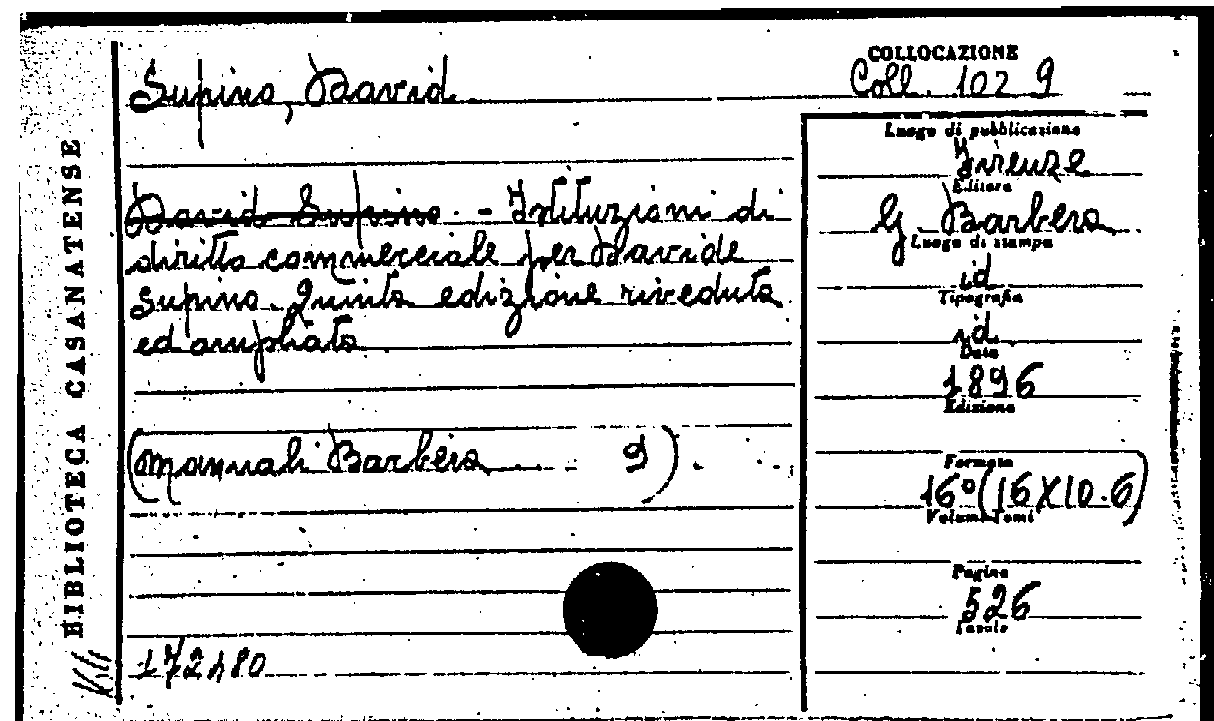 COLLOCAZIONE
Supino, David Coll. 102 9
BIBLIOTECA CASANATENSE
David Supino. - Istituzioni di
diritto commerciale per Davide
Supino. Quinta edizione riveduta
ed ampliata
(Manuali Barbèra 9).
172180
Luogo di pubblicazione
Firenze
Editore
G. Barbera
Luogo di stampa
id
Tipografia
id.
Data
1896
Edizione
Formato
16° (16X10.6)
Volumi-Tomi
Pagine
526
Tavole